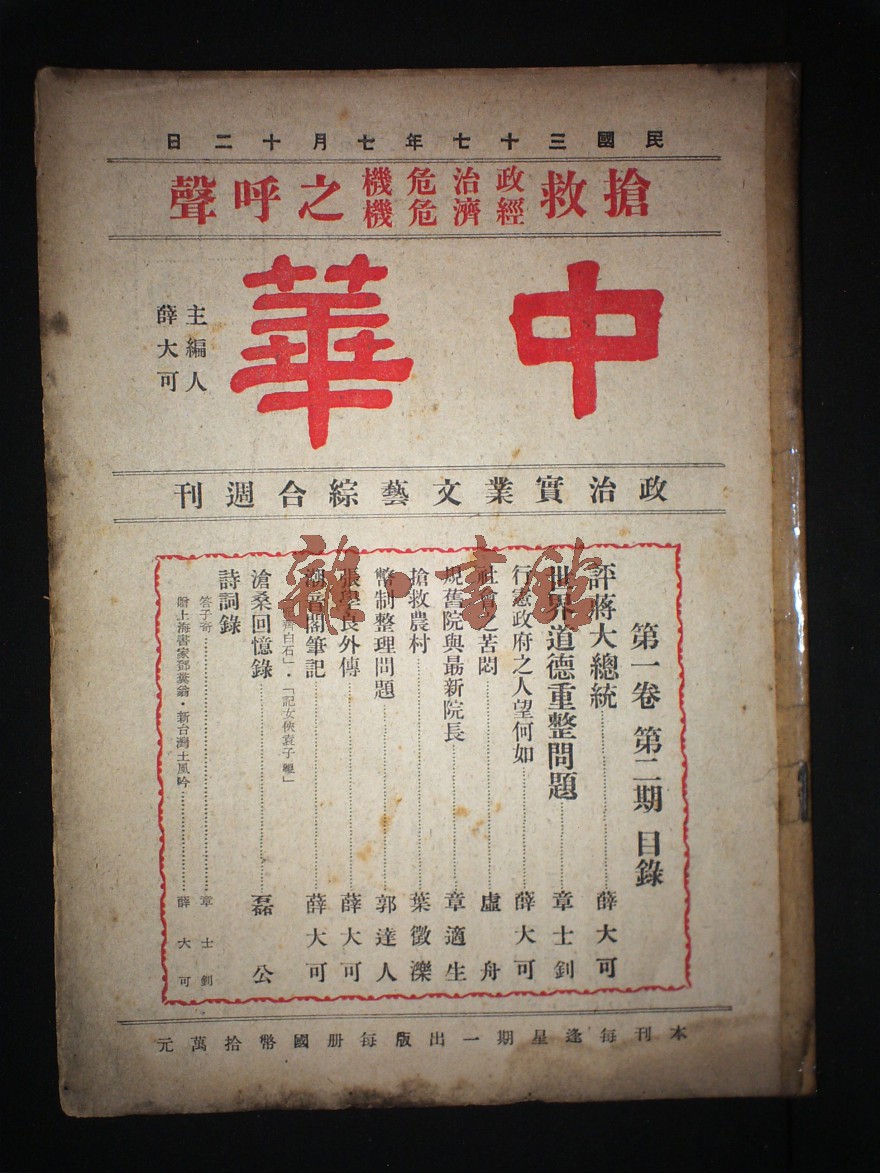 民國三十七年七月十二日
搶救政治危機經濟危機之呼聲
中華
主編人
薛大可
政治實業文藝綜合週刊
第一卷 第二期 目錄
評蔣大總統 薛大可
世界道德重整問題 章士釗
行憲政府之人望何如 薛大可
社會之苦悶 虛舟
規舊院與最新院長 章適生
搶救農村 葉徵濼
幣制整理問題 郭達人
張學良外傳 薛大可
潮音閣筆記 薛大可
齊白石」·「記女俠袁子
滄桑回憶錄 磊公
詩詞錄
答子奇 章士釗
贈上海書家鄧糞翁·新台灣土風吟 薛大可
本刊每逢星期一出版每册國幣拾萬元
雜·書館